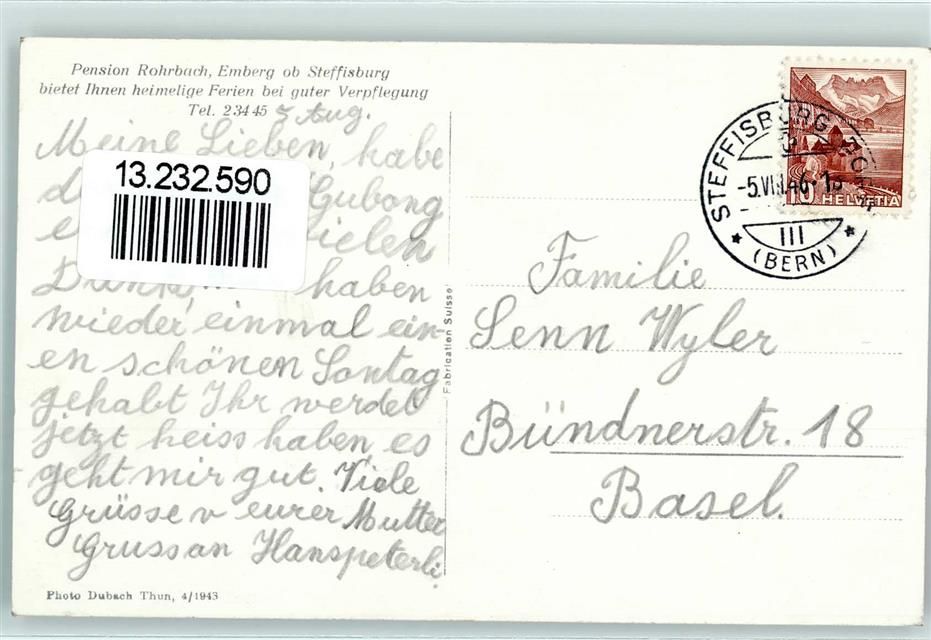 Pension Rohrbach, Emberg ob Steffisburg
bietet Ihnen heimelige Ferien bei guter Verpflegung
Tel. 2 34 45
5 Aug.
Meine Lieben, habe
13.232.590
haben
wieder einmal ein-
en schönen Sontag
gehabt Ihr werdet
jetzt heiss haben, es
geht mir gut. Viele
Grüsse v eurer Mutter
Gruss an Hanspeterli
Photo Dubach Thun, 4/1943
Fabrication Suisse
STEFFISBURG
-5.VIII.46-
III
(BERN)
10 HELVETIA
Familie
Senn Wyler
Bündnerstr. 18
Basel.